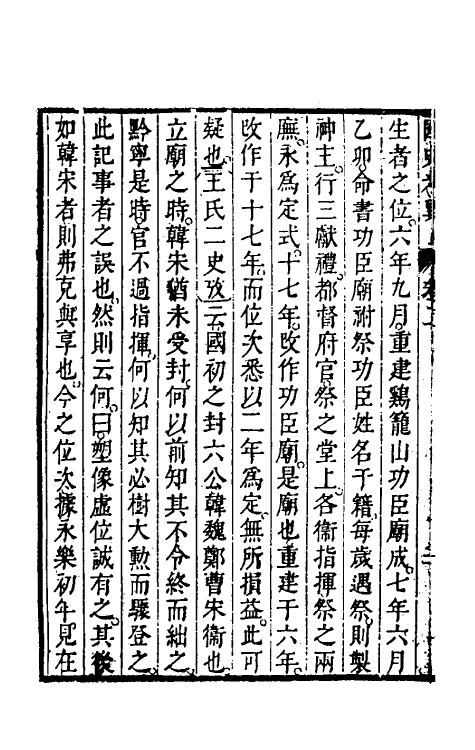 生者之位。六年九月。重建鷄籠山功臣廟成。七年六月
乙卯。命書功臣廟祔祭功臣姓名于籍。每歲遇祭。則製
神主。行三獻禮。都督府官祭之堂上。各衞指揮祭之兩
廡。永爲定式。十七年。改作功臣廟。是廟也重建于六年。
改作于十七年。而位次悉以二年爲定。無所損益。此可
疑也。王氏二史攷云。國初之封六公韓魏鄭曹宋衞也
立廟之時。韓宋猶未受封。何以前知其不令終而絀之
黔寧是時官不過指揮。何以知其必樹大勳而驟登之。
此記事者之誤也。然則云何。曰。塑像虛位誠有之。其後
如韓宋者則弗克與享也。今之位次據永樂初年見在